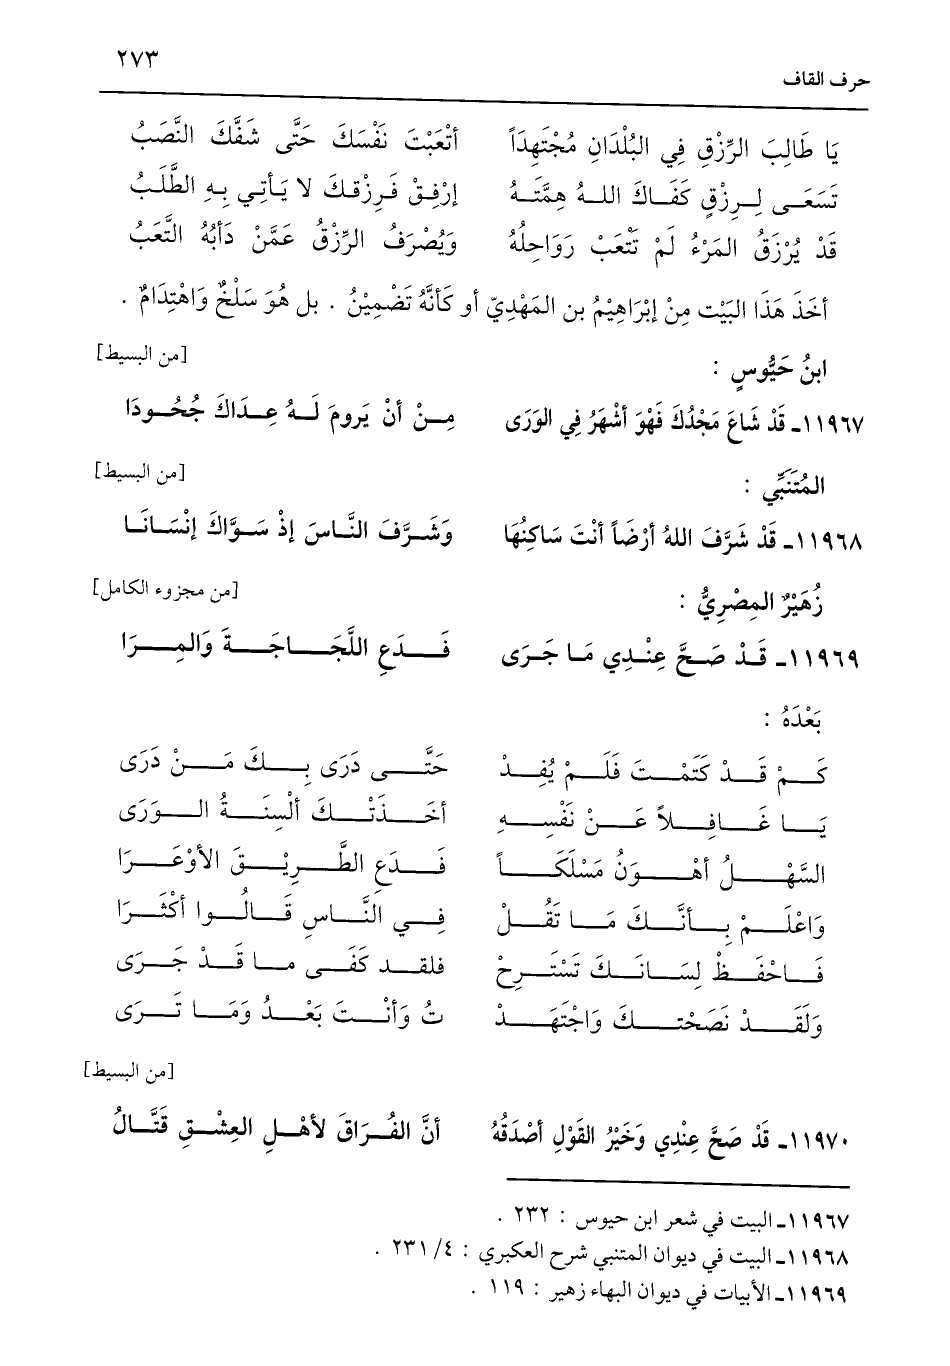 ٢٧٣
حرف القاف
يَا طَالِبَ الرِّزْقِ فِي البُلْدَانِ مُجْتَهِدَاً أَتْعَبْتَ نَفْسَكَ حَتَّى شَفَّكَ النَّصَبُ
تَسَعَى لِرِزْقٍ كَفَاكَ اللهُ هِمَّتَهُ إرْفِقْ فَرِزْقكَ لا يَأتِي بِهِ الطَّلَبُ
قَدْ يُرْزَقُ المَرْءُ لَمْ تَتْعَبْ رَوَاحِلُهُ وَيُصْرَفُ الرِّزْقُ عَمَّنْ دَأبُهُ التَّعَبُ
أخَذَ هَذَا البَيْت مِنْ إبْرَاهِيْمُ بن المَهْدِيّ أو كَأنَّهُ تَضْمِيْنُ . بل هُوَ سَلْخٌ وَاهْتِدَامٌ .
ابنُ حَيُّوسٍ : [من البسيط]
١١٩٦٧ـ قَدْ شَاعَ مَجْدُكَ فَهْوَ أشْهَرُ فِي الوَرَى مِنْ أنْ يَرومَ لَهُ عِدَاكَ جُحُودَا
المُتَنَبِّي : [من البسيط]
١١٩٦٨ـ قَدْ شَرَّفَ اللهُ أرْضَاً أنْتَ سَاكِنُهَا وَشَرَّفَ النَّاسَ إذْ سَوَّاكَ إنْسَانَا
زُهَيْرٌ المِصْرِيُّ : [من مجزوء الكامل]
١١٩٦٩ـ قَدْ صَحَّ عِنْدِي مَا جَرَى فَدَعِ اللَّجَاجَةَ وَالمِرَا
بَعْدَهُ :
كَمْ قَدْ كَتَمْتَ فَلَمْ يُفِدْ حَتَّى دَرَى بِكَ مَنْ دَرَى
يَا غَافِلاً عَنْ نَفْسِهِ أخَذَتْكَ ألْسِنَةُ الوَرَى
السَّهْلُ أهْوَنُ مَسْلَكَاً فَدَعِ الطَّرِيْقَ الأوْعَرَا
وَاعْلَمْ بِأنَّكَ مَا تَقُلْ فِي النَّاسِ قَالُوا أكْثَرَا
فَاحْفَظْ لِسَانَكَ تَسْتَرِحْ فلقد كَفَى ما قَدْ جَرَى
وَلَقَدْ نَصَحْتكَ وَاجْتَهَدْ تُ وَأنْتَ بَعْدُ وَمَا تَرَى
[من البسيط]
١١٩٧٠ـ قَدْ صَحَّ عِنْدِي وَخَيْرُ القَوْلِ أصْدَقُهُ أنَّ الفُرَاقَ لأهْلِ العِشْقِ قَتَّالُ
١١٩٦٧ـ البيت في شعر ابن حيوس : ٢٣٢ .
١١٩٦٨ـ البيت في ديوان المتنبي شرح العكبري : ٤/ ٢٣١ .
١١٩٦٩ـ الأبيات في ديوان البهاء زهير : ١١٩ .